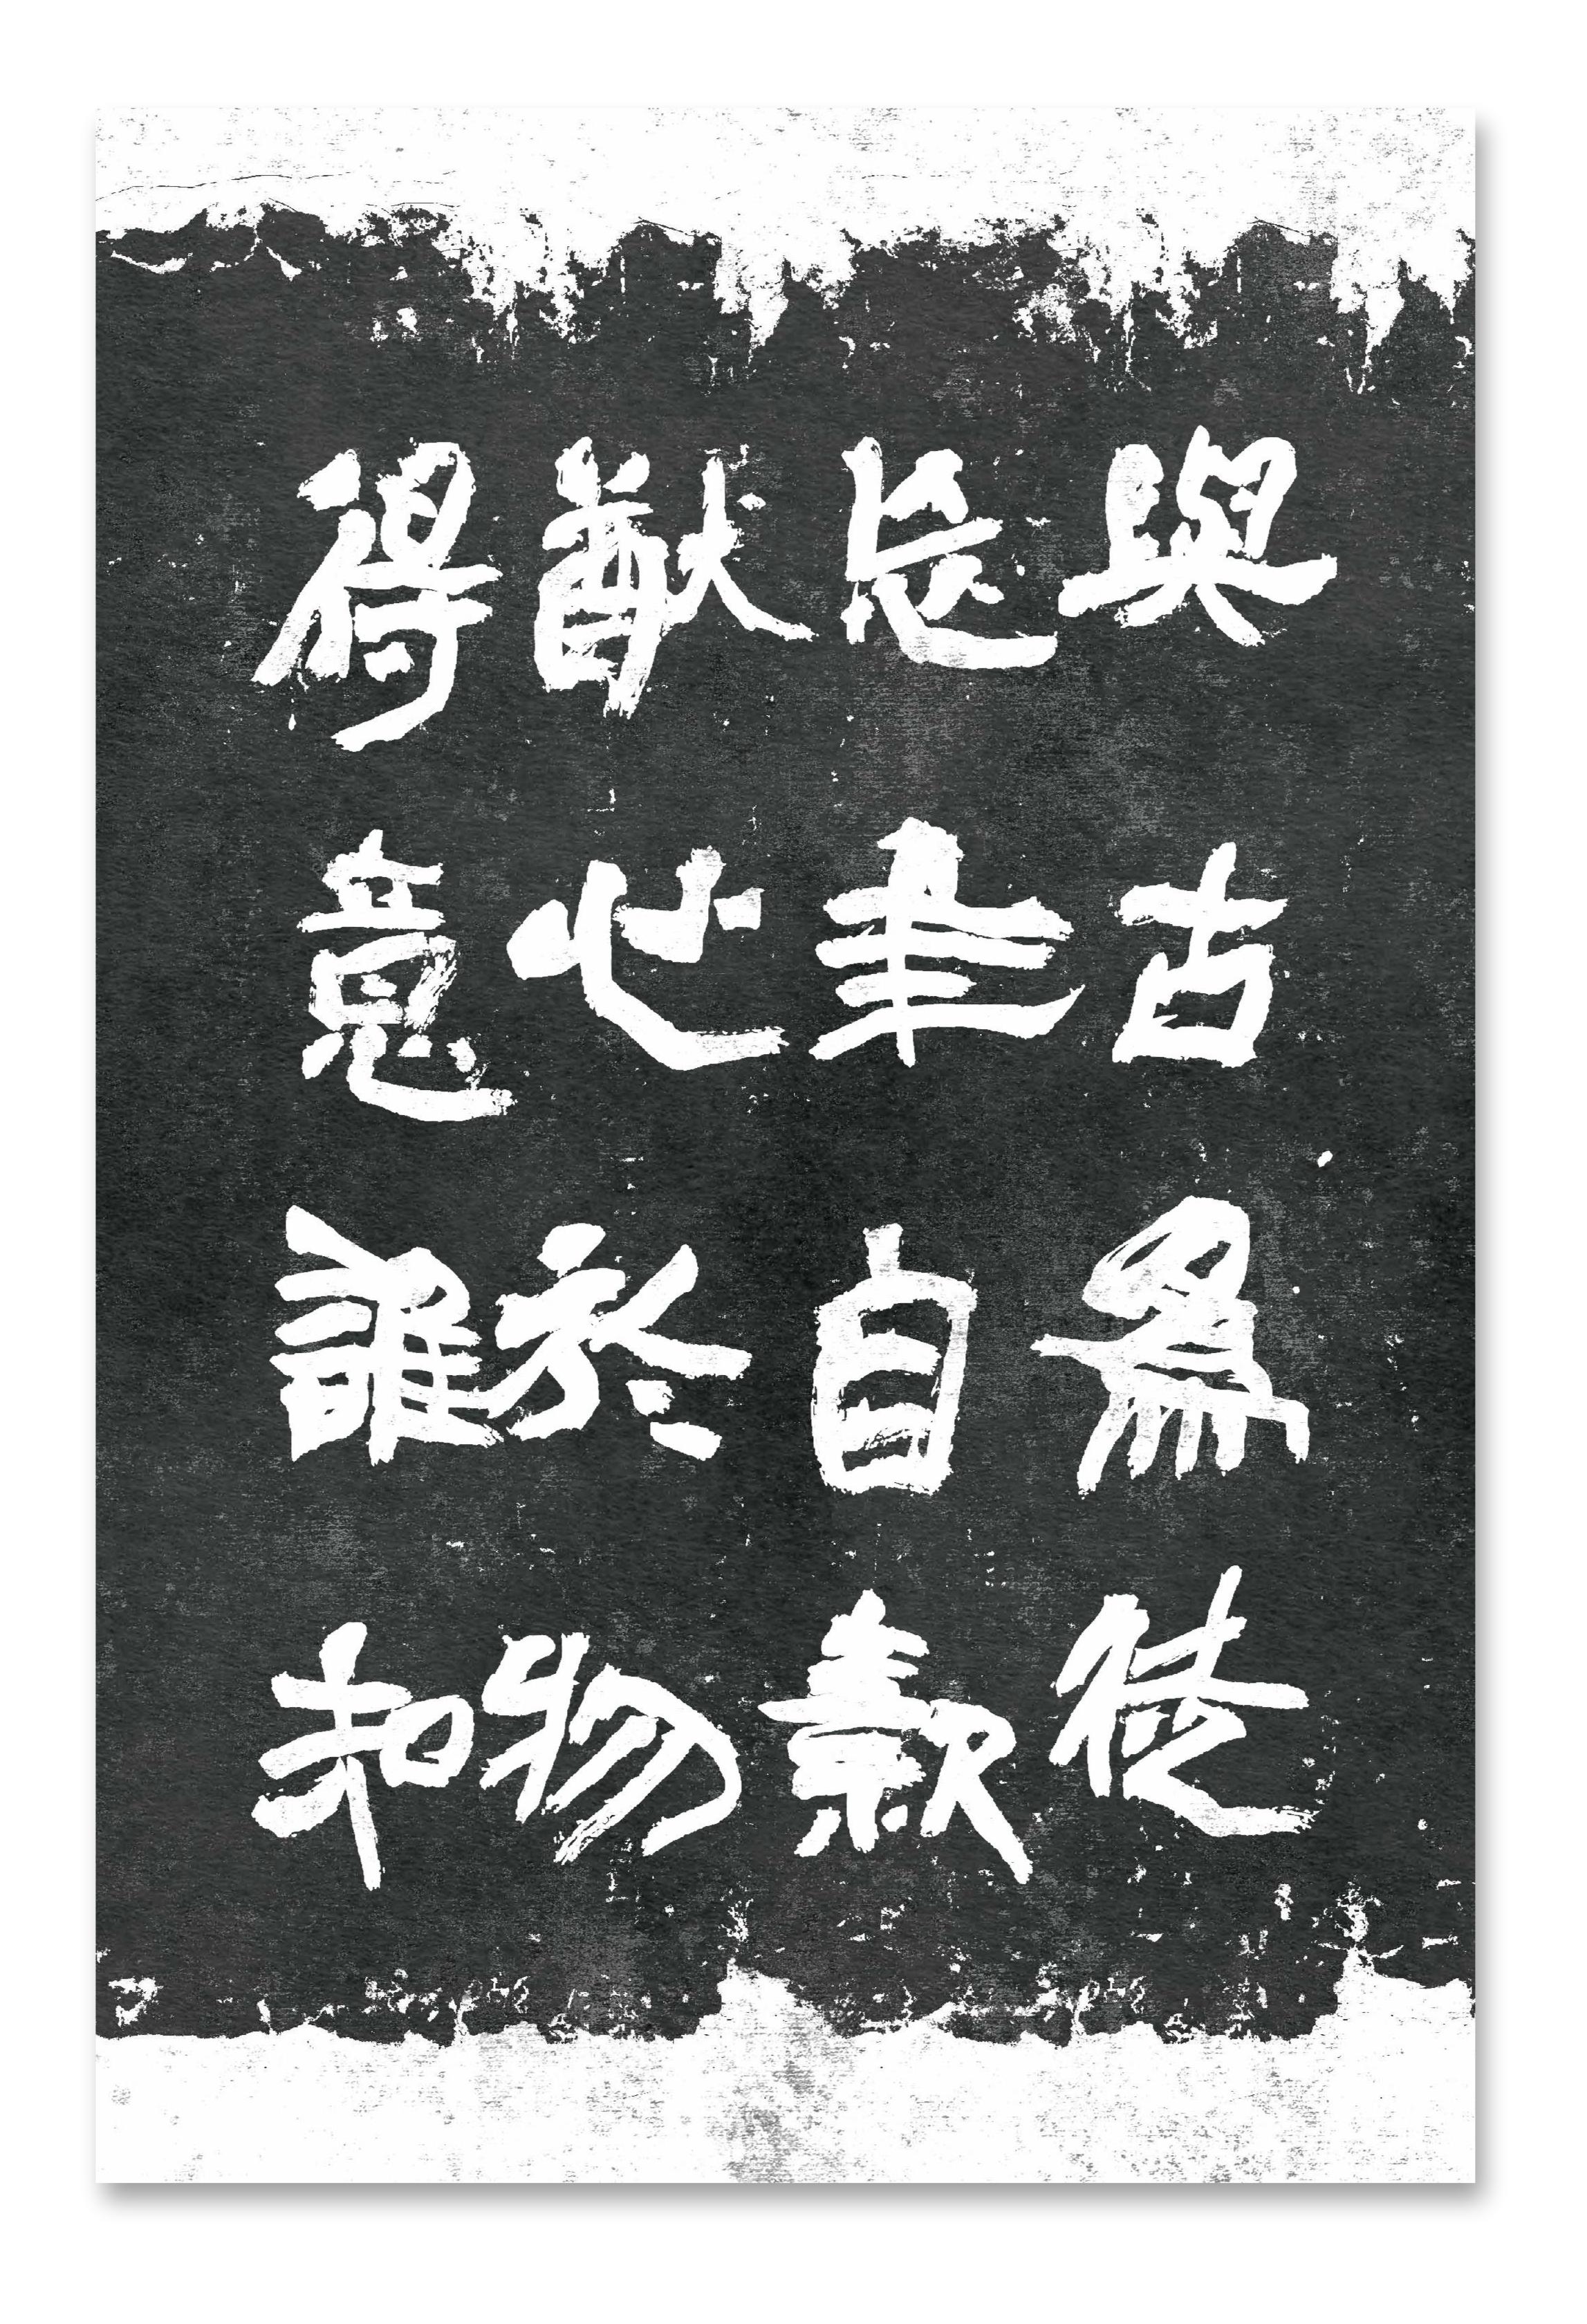 與古爲徒
年自款
猷心於物
得意誰和